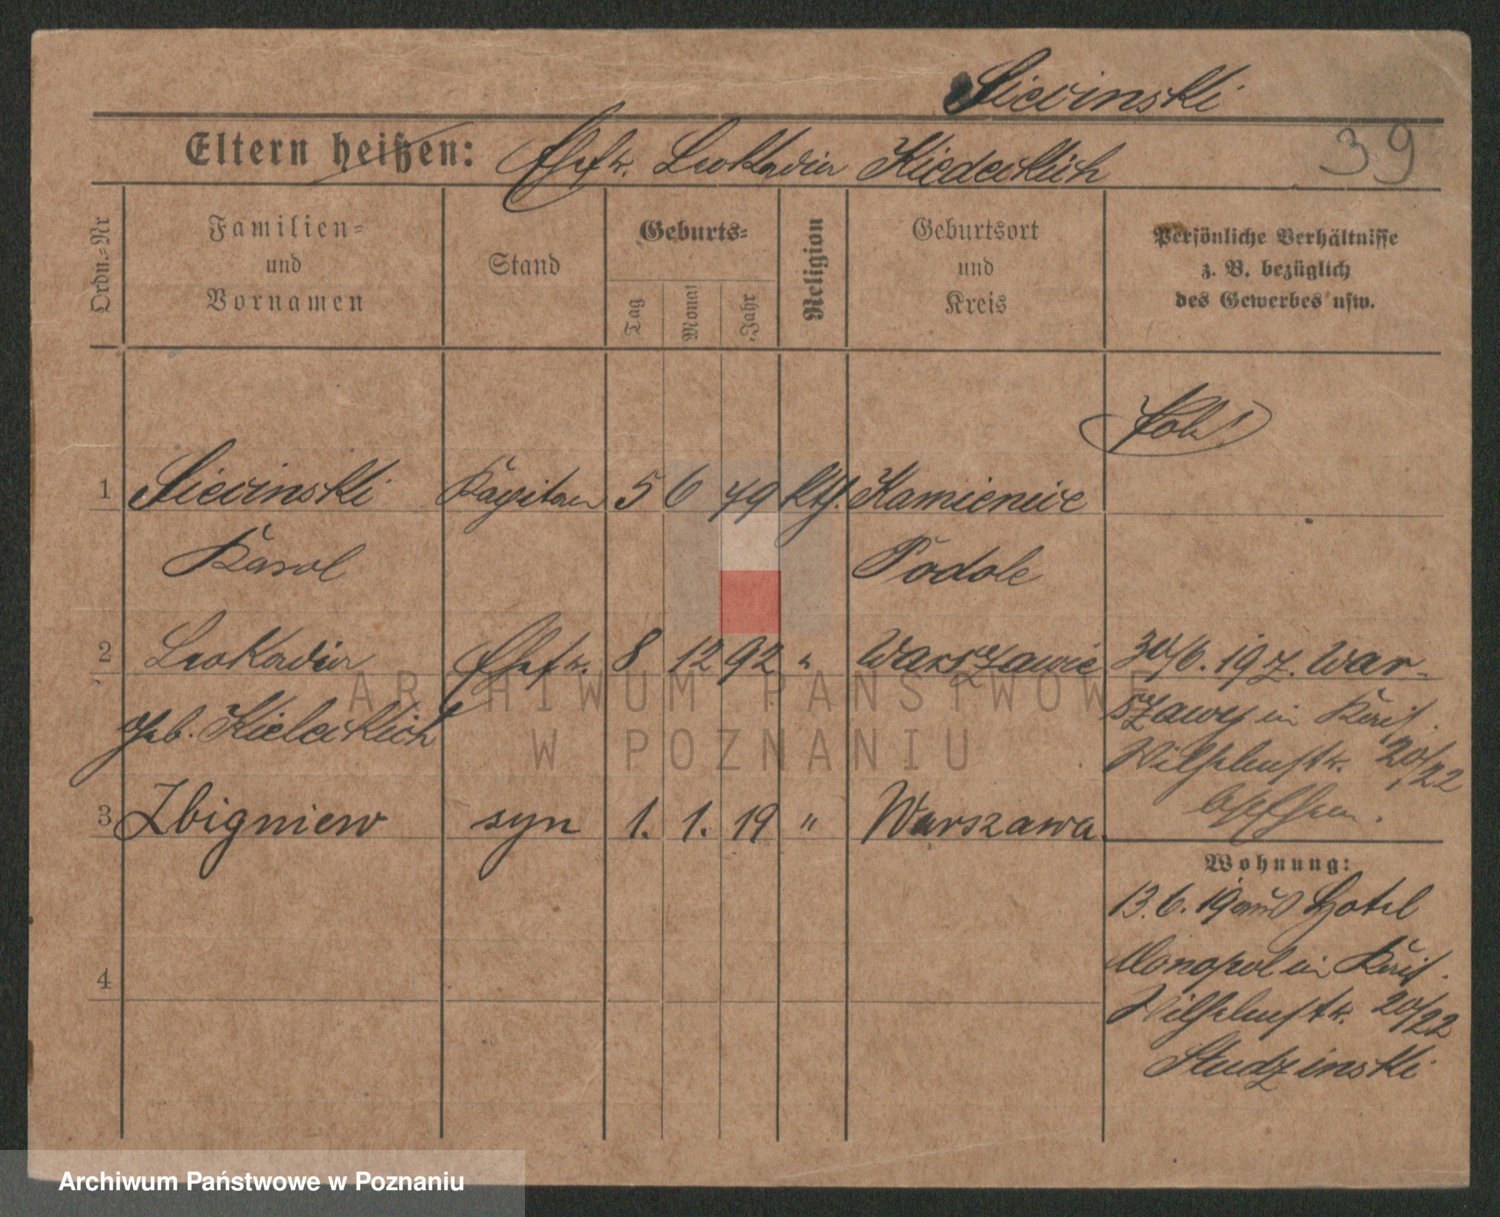 Siewinski
39
Eltern heißen: Ehefr. Leokadia
Ordn.-Nr
Familien-
und
Vornamen
Stand
Geburts-
Tag
Monat
Jahr
Religion
Geburtsort
und
Kreis
Persönliche Verhältnisse
z. B. bezüglich
des Gewerbes usw.
1 Siewinski Kapitan 5 6 79 kth. Kamieniec
Karol Podole
2 Leokadia Ehefr. 8 12 92 " Warszawie 30/6. 19 z. War-
geb. szawy in
Wilhelmstr. 20/22
3 Zbigniew syn 1. 1. 19 " Warszawa.
Wohnung:
13. 6. 19 aus Hotel
Monopol in
4
Wilhelmstr. 20/22
Studzinski
ARCHIWUM PAŃSTWOWE
W POZNANIU
Archiwum Państwowe w Poznaniu